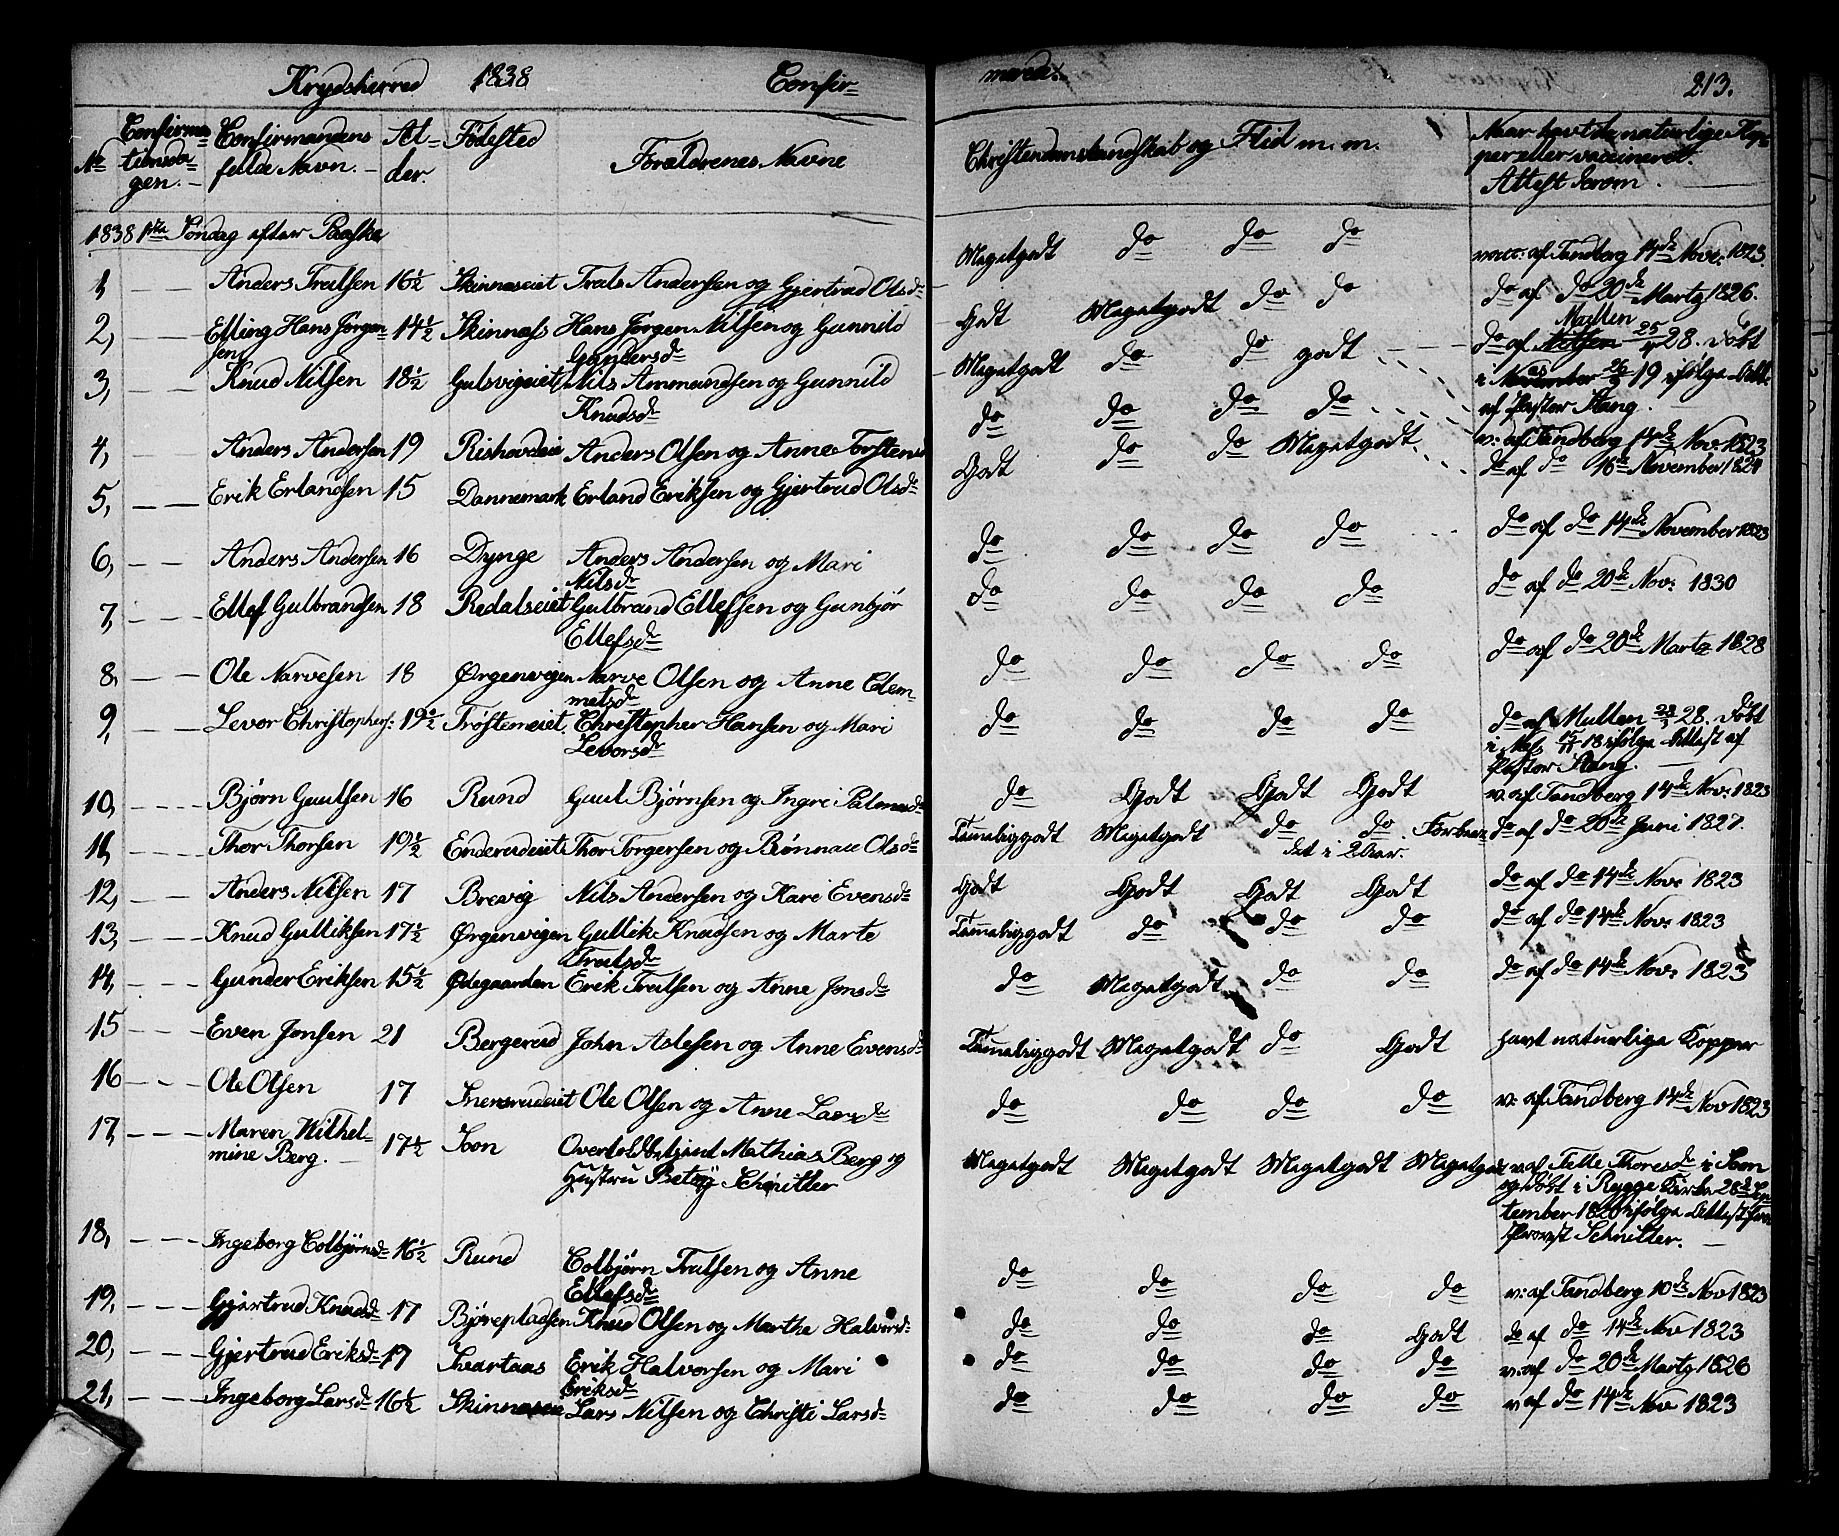 Krydsherred 1838 Confir-
mered. 213.
No Confirmationsdagen. Confirmandens fulde Navn. Alder. Fødested Forældrenes Navne
Christendomskundskab og Flid m. m.
Naar havt de naturlige Kopper eller vaccineret. Attest derom.
1838 1ste Søndag efter Paaske
1, Anders Trulsen 16½ Skinneseiet Truls Andersen og Gjertrud Olsdr
Megetgodt do do do vacc: af Tandberg 14de Nov: 1823
2, Elling Hans Jørgensen 14½ Skinnæss Hans Jørgen Nilsen og Gunnild Gundersdr
Godt Megetgodt do do do af do 20de Martz 1826.
3, Knud Nilsen 18½ Gulsvigeiet Nils Ammundsen og Gunnild Knudsdr
Megetgodt do do godt do af Mullen 25/4 28. Døbt
i 26 19 ifølge Attest
af Pastor Stang.
4, Anders Andersen 19 Rishovdeie Anders Olsen og Anne Torstensd
do do do do v: af Tandberg 14de Nov: 1823
5, Erik Erlandsen 15 Dannemark Erland Eriksen og Gjertrud Olsdr
Godt do do Megetgodt do af do 16de November 1824
6, Anders Andersen 16 Dynge Anders Andersen og Mari Nilsdr
do do do do do af do 14de November 1823
7, Ellef Gulbrandsen 18 Redalseiet Gulbrand Ellefsen og Gunbjør Ellefsdr
do do do do do af do 20de Nov: 1830
8, Ole Narvesen 18 Ørgenvigen Narve Olsen og Anne Clemmetsdr
do do do do do af do 20de Martz 1828
9, Levor Christophers: 19½ Trøstemeiet Christopher Hansen og Mari Levorsdr
do do do do do af Mullen 28. Døbt
i Næs 18 ifølge Attest af
Pastor Stang.
10, Bjørn Guulsen 16 Rund Guul Bjørnsen og Ingri Palmesdr
do Godt Godt Godt v: af Tandberg 14de Nov: 1823
11, Thor Thorsen 19½ Enderudeiet Thor Torgersen og Rønnau Olsdr
Temeliggodt Megetgodt do do det i 2 Aar. do af do 20de Juni 1827.
12, Anders Nilsen 17 Brevig Nils Andersen og Kari Evensdr
Godt Godt Godt Godt do af do 14de Nov 1823
13, Knud Gulliksen 17½ Ørgenvigen Gullik Knudsen og Marte Trulsdr
Temeliggodt do do do do af do 14de Nov: 1823
14, Gunder Eriksen 15½ Ødegaarden Erik Trulsen og Anne Jonsdr
do Megetgodt do do do af do 14de Nov: 1823
15 Even Jonsen 21 Bergerud John Aslesen og Anne Evensdr
Temeliggodt Megetgodt do Godt havt naturlige Kopper
16 Ole Olsen 17 Inersrudeiet Ole Olsen og Anne Larsdr
do do do do v: af Tandberg 14de Nov 1823
17, Maren Wilhelmine Berg. 17½ Soon Overtoldbetjent Mathias Berg og
Hustru Betsy Schnitler
Megetgodt Megetgodt Megetgodt Megetgodt v. af Pelle Thoresdr i Soon
og døbt i Rygge Kirke 28de Sep-
tember 1820 ifølge Attest fra
Provst Schnitler.
18, Ingeborg Colbjørnsdr 16½ Rund Colbjørn Trulsen og Anne Ellefsdr
do do do do v: af Tandberg 10de Nov 1823
19, Gjertrud Knudsdr 17 Bjørepladsen Knud Olsen og Marthe Halvorsdr
do do do Godt do af do 14de Nov 1823
20, Gjertrud Eriksdr 17 Svartaas Erik Halvorsen og Mari Eriksdr
do do do do v: af do 20de Martz 1826
21, Ingeborg Larsdr 16½ Lars Nilsen og Christi Larsdr
do do do do v af do 14de Nov 1823